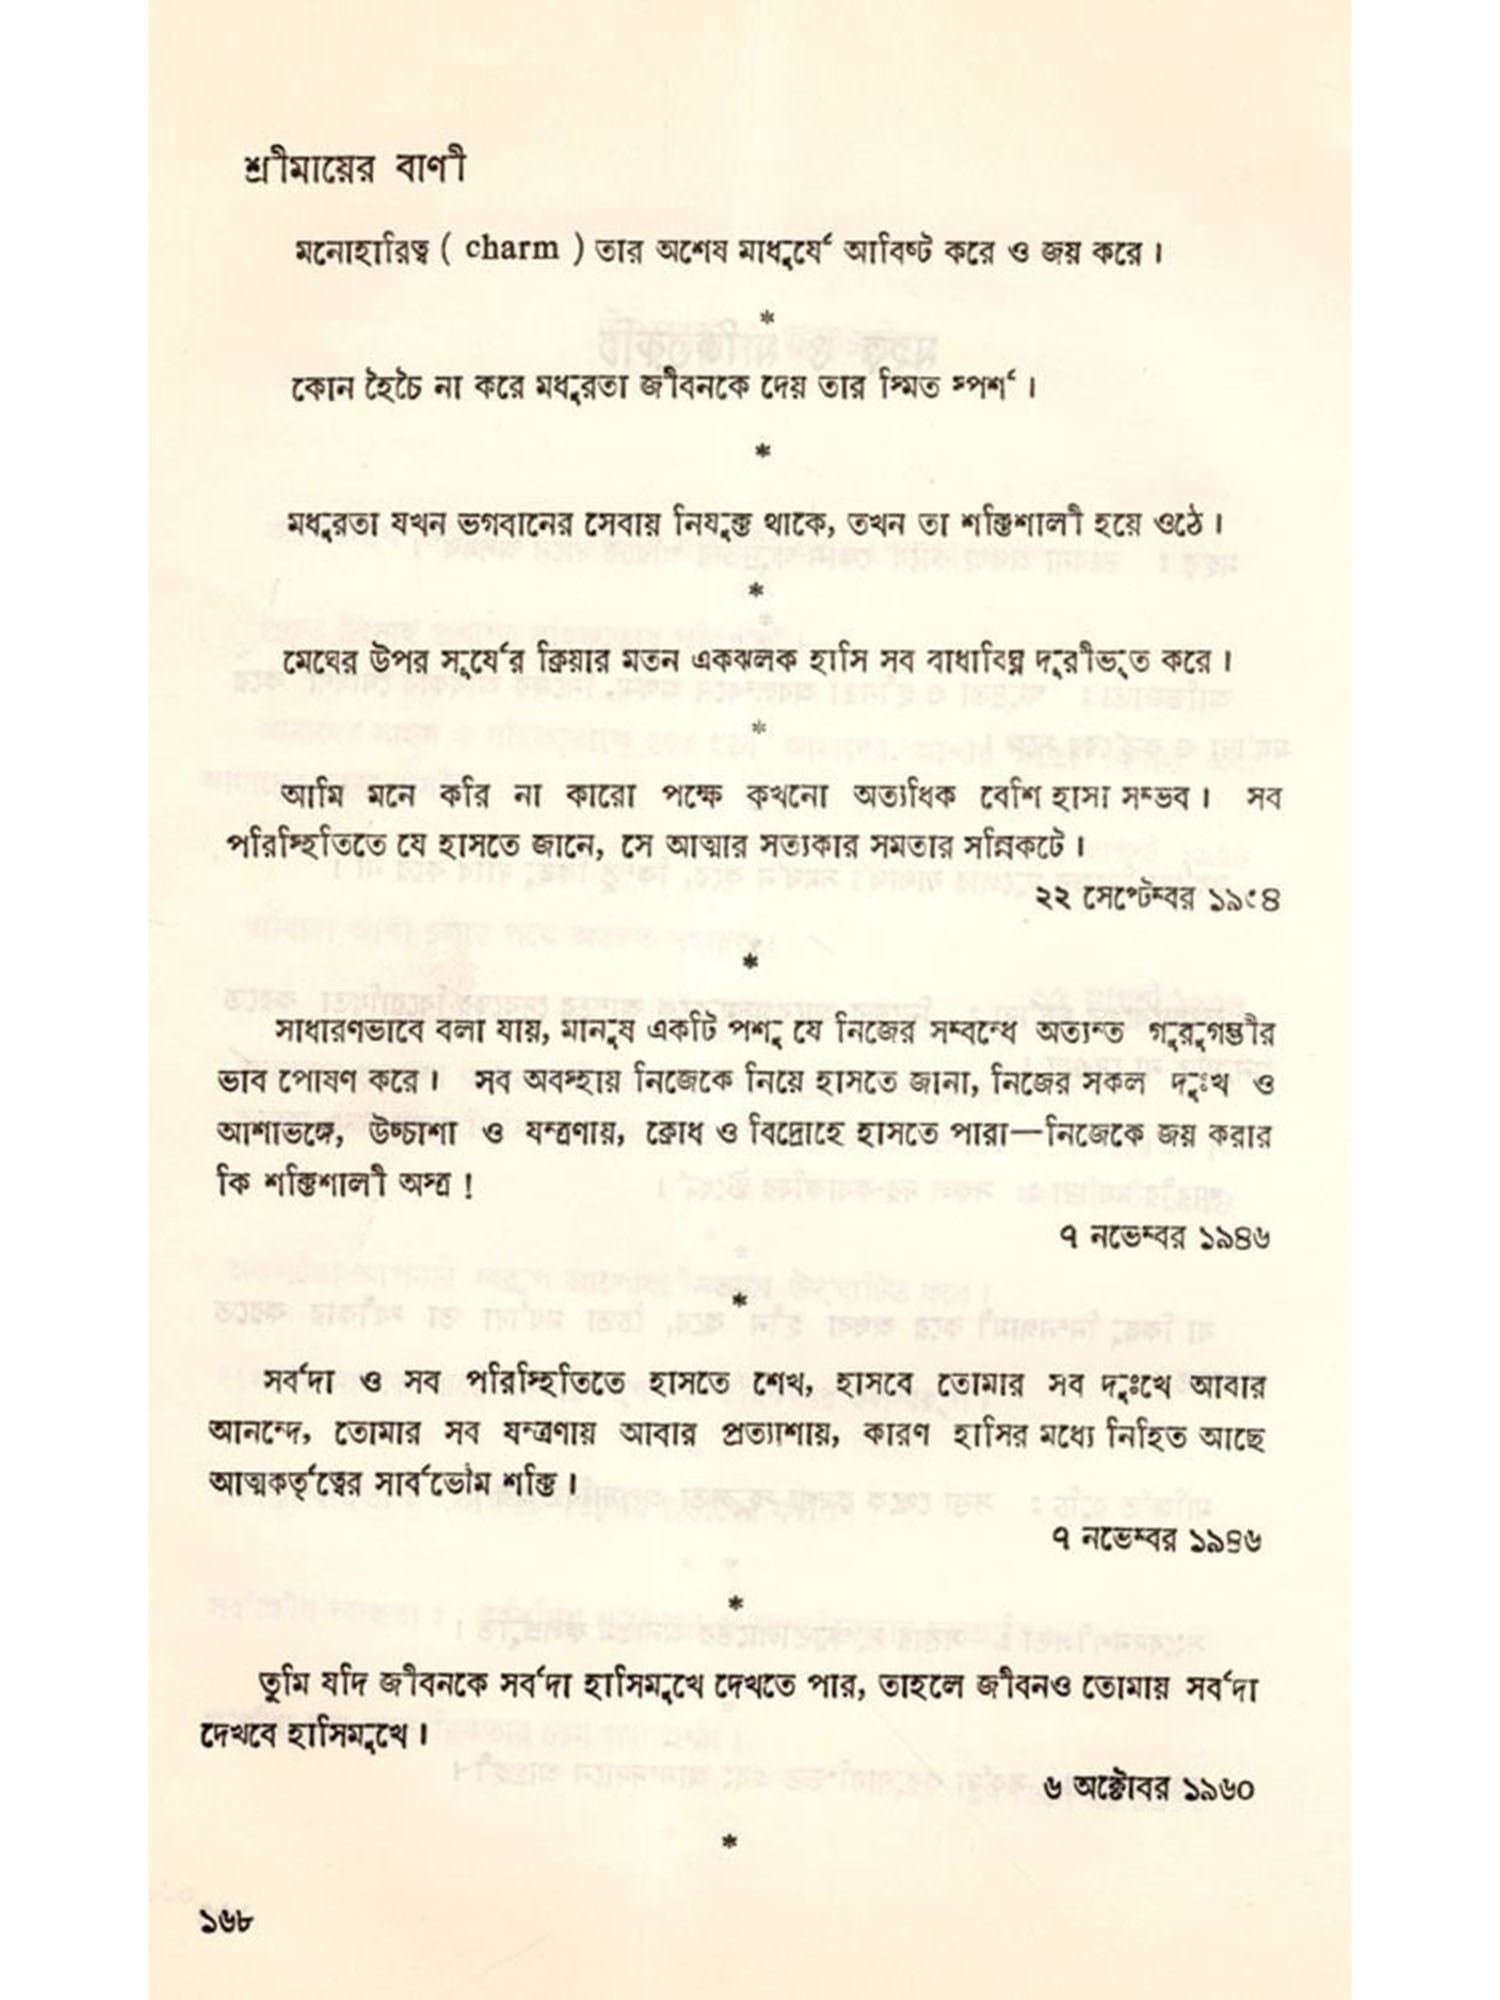 শ্রীমায়ের বাণী
মনোহারিত্ব ( charm ) তার অশেষ মাধুর্যে আবিষ্ট করে ও জয় করে ।
*
কোন হৈচৈ না করে মধুরতা জীবনকে দেয় তার স্মিত স্পর্শ ।
*
মধুরতা যখন ভগবানের সেবায় নিযুক্ত থাকে, তখন তা শক্তিশালী হয়ে ওঠে ।
*
মেঘের উপর সূর্যের ক্রিয়ার মতন একঝলক হাসি সব বাধাবিঘ্ন দূরীভূত করে ।
*
আমি মনে করি না কারো পক্ষে কখনো অত্যধিক বেশি হাসা সম্ভব । সব
পরিস্থিতিতে যে হাসতে জানে, সে আত্মার সত্যকার সমতার সন্নিকটে ।
২২ সেপ্টেম্বর ১৯৫৪
*
সাধারণভাবে বলা যায়, মানুষ একটি পশু যে নিজের সম্বন্ধে অত্যন্ত গুরুগম্ভীর
ভাব পোষণ করে । সব অবস্থায় নিজেকে নিয়ে হাসতে জানা, নিজের সকল দুঃখ ও
আশাভঙ্গে, উচ্চাশা ও যন্ত্রণায়, ক্রোধ ও বিদ্রোহে হাসতে পারা—নিজেকে জয় করার
কি শক্তিশালী অস্ত্র !
৭ নভেম্বর ১৯৪৬
*
সর্বদা ও সব পরিস্থিতিতে হাসতে শেখ, হাসবে তোমার সব দুঃখে আবার
আনন্দে, তোমার সব যন্ত্রণায় আবার প্রত্যাশায়, কারণ হাসির মধ্যে নিহিত আছে
আত্মকর্তৃত্বের সার্বভৌম শক্তি ।
৭ নভেম্বর ১৯৪৬
*
তুমি যদি জীবনকে সর্বদা হাসিমুখে দেখতে পার, তাহলে জীবনও তোমায় সর্বদা
দেখবে হাসিমুখে ।
৬ অক্টোবর ১৯৬০
*
১৬৮